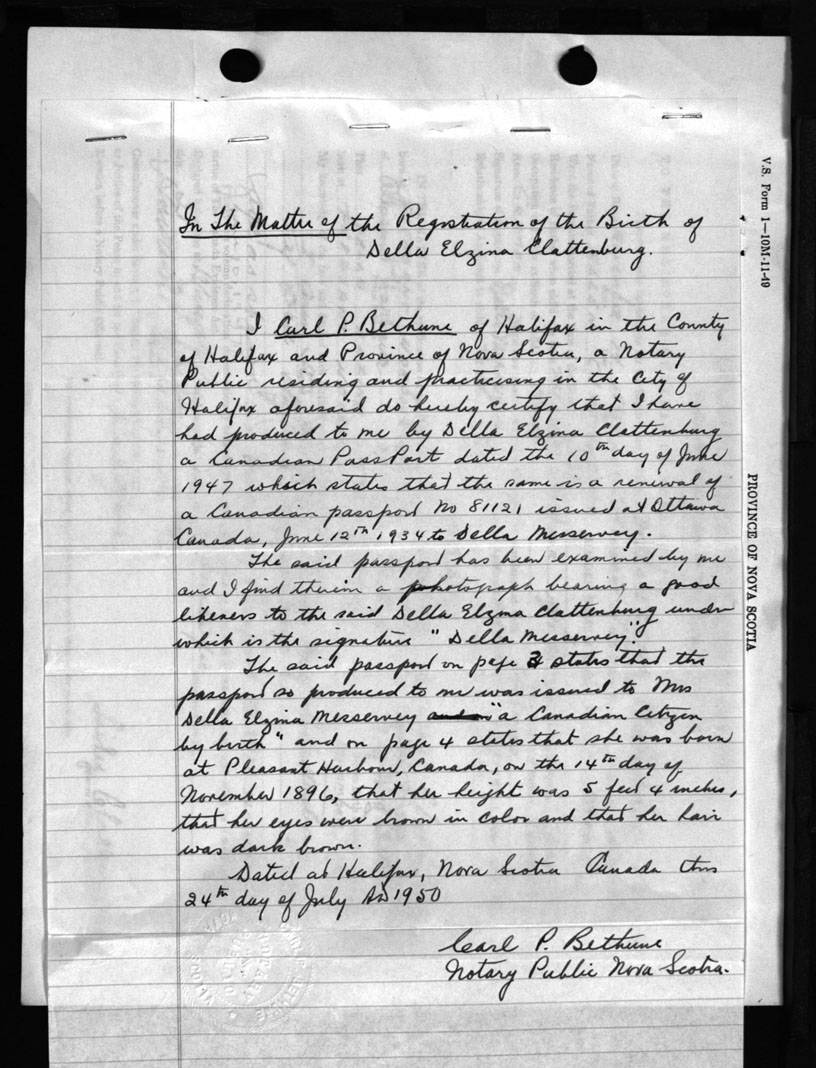 In The Matter of the Registration of the Birth of
Della Elzina Clattenburg.
I Carl P. Bethune of Halifax in the County
of Halifax and Province of Nova Scotia, a Notary
Public residing and practising in the City of
Halifax aforesaid do hereby certify that I have
had produced to me by Della Elzina Clattenburg
a Canadian PassPort dated the 10th day of June
1947 which states that the same is a renewal of
a Canadian passport No 81121 issued at Ottawa
Canada, June 12th 1934 to Della Messervey.
The said passport has been examined by me
and I find therein a photograph bearing a good
likeness to the said Della Elzina Clattenburg under
which is the signature "Della Messervey".
The said passport on page states that the
passport so produced to me was issued to Mrs
Della Elzina Messervey "a Canadian Citizen
by birth" and on page 4 states that she was born
at Pleasant Harbour, Canada, on the 14th day of
November 1896, that her height was 5 feet 4 inches,
that her eyes were brown in color and that her hair
was dark brown.
Dated at Halifax, Nova Scotia Canada this
24th day of July AD 1950
Carl P. Bethune
Notary Public Nova Scotia.
V.S. Form 1—10M-11-49
PROVINCE OF NOVA SCOTIA